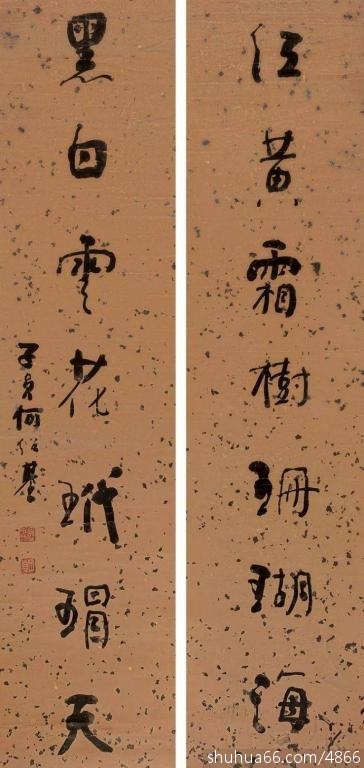 红黄霜樹珊瑚海
黑白雲花玳瑁天
子貞何紹基
shuhua66.com/4866